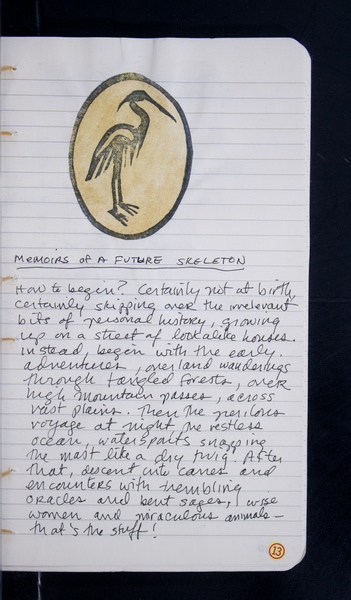 MEMOIRS OF A FUTURE SKELETON
How to begin? Certainly not at birth,
certainly skipping over the irrelevant
bits of personal history, growing
up on a street of lookalike houses.
Instead, begin with the early
adventures, overland wanderings
through tangled forests, over
high mountain passes, across
vast plains. Then the perilous
voyage at night, the restless
ocean, waterspouts snapping
the mast like a dry twig. After
that, descent into caves and
encounters with trembling
oracles and bent sages, wise
women and miraculous animals—
that's the stuff!
13